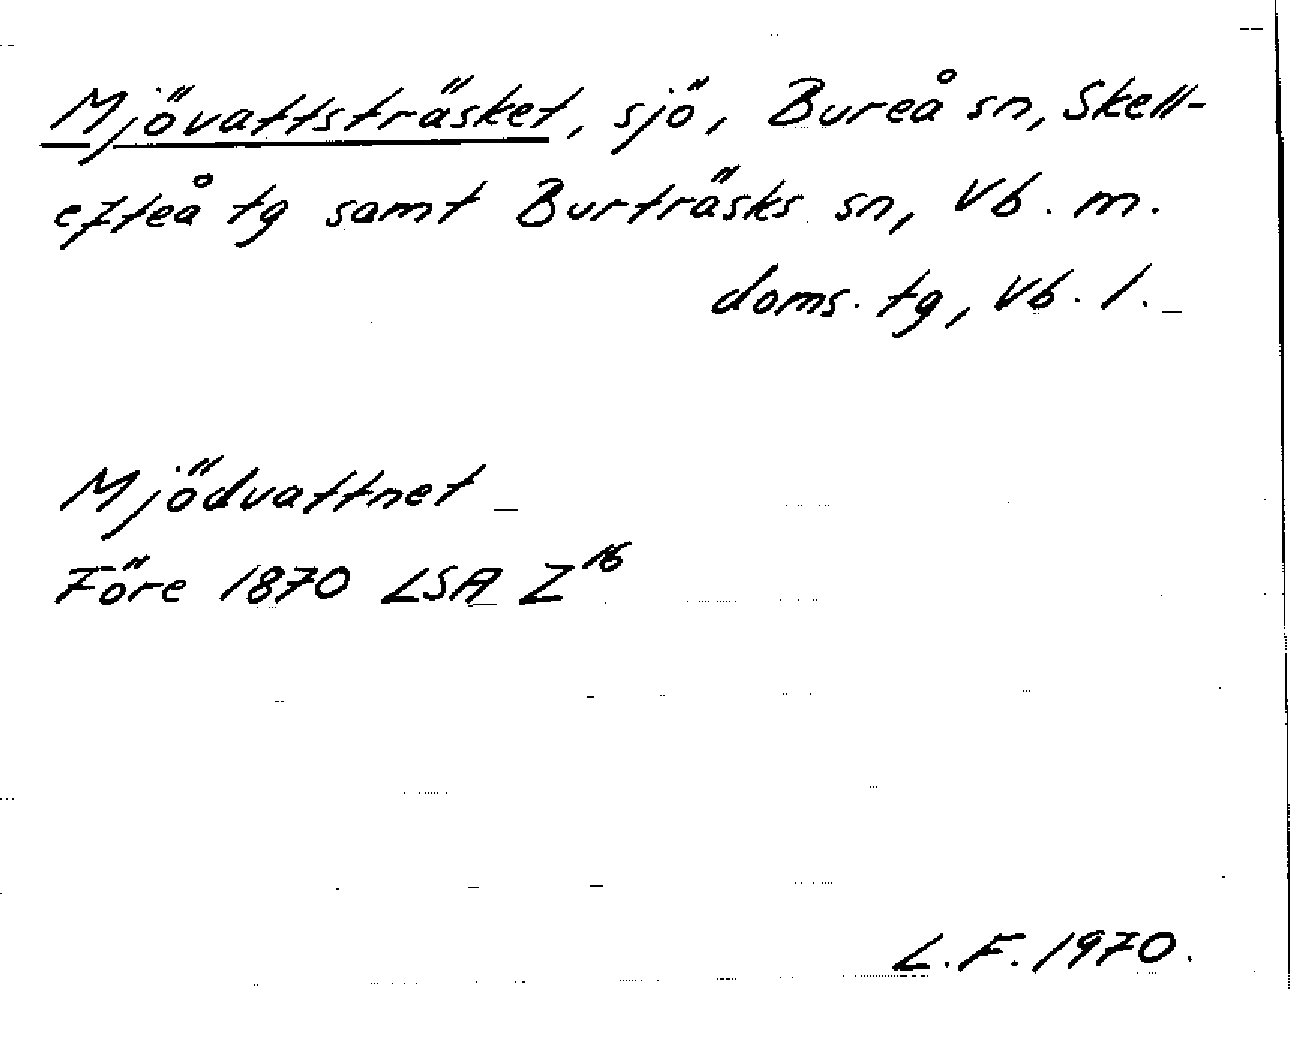 Mjövattsträsket, sjö, Bureå sn, Skell-
efteå tg samt Burträsks sn, Vb. m.
doms. tg, Vb. l.
Mjödvattnet
Före 1870 LSA Z16
L.F. 1970.